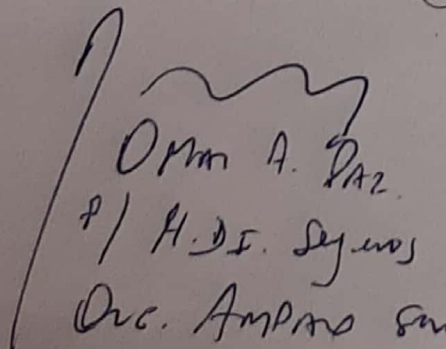 Omar A. Paz.
P/ H.D.I. Seguros
Amparo